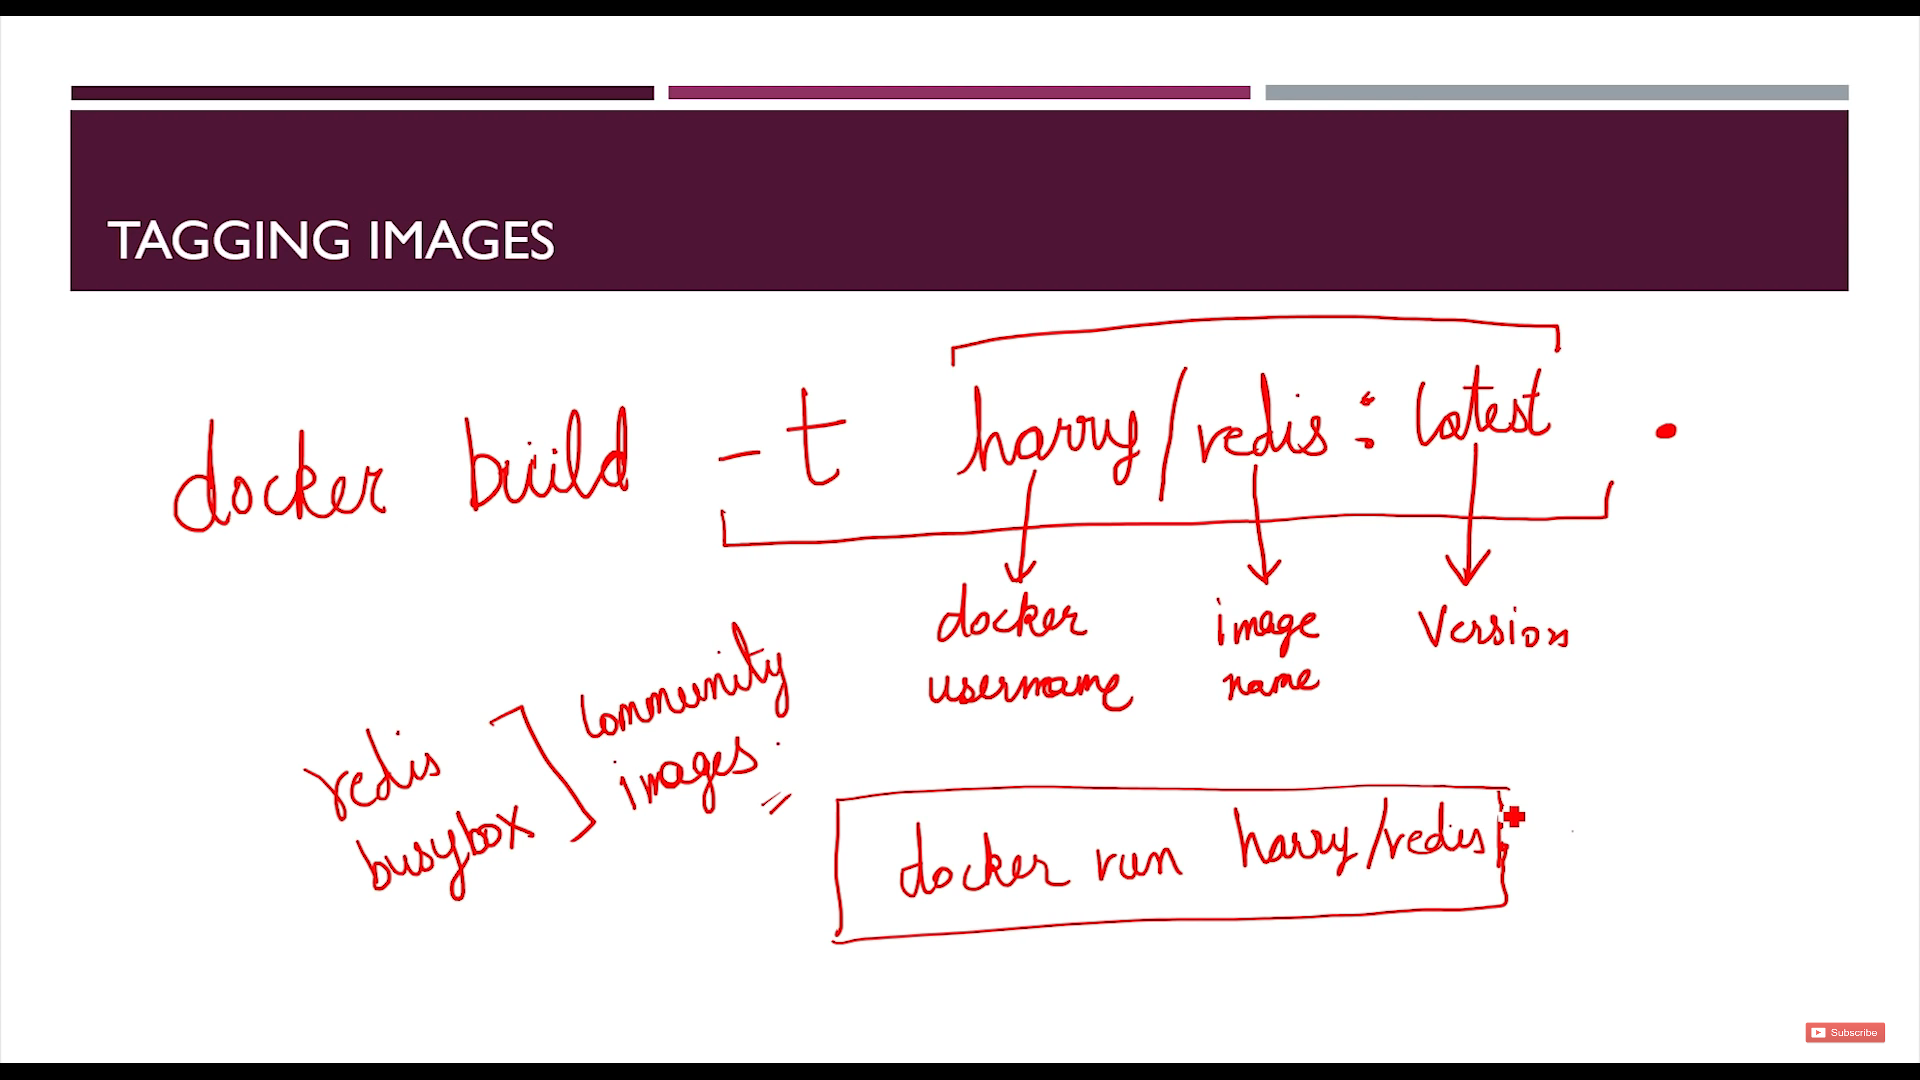 TAGGING IMAGES
docker build -t harry/redis:latest .
docker username
image name
Version
redis
busybox
community
images.
docker run harry/redis
Subscribe